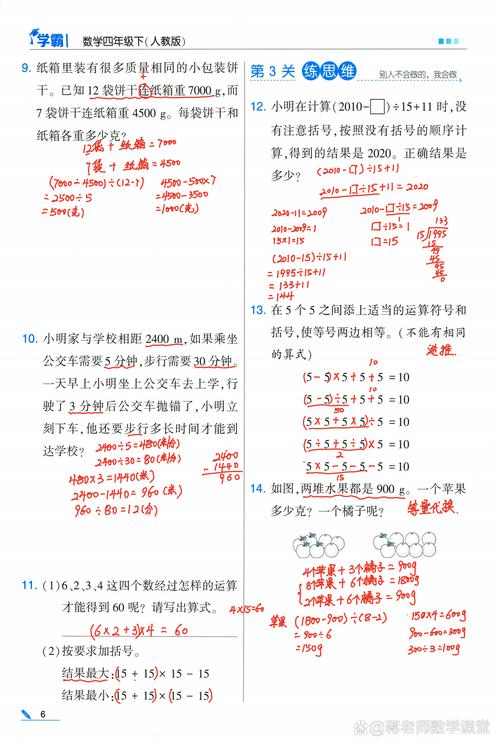 学霸 数学四年级下(人教版)
9. 纸箱里装有很多质量相同的小包装饼
干。已知12袋饼干连纸箱重7000 g,而
7袋饼干连纸箱重4500 g。每袋饼干和
纸箱各重多少克?
12袋+纸箱=7000
7袋+纸箱=4500
(7000-4500)÷(12-7) 4500-500×7
=2500÷5 =4500-3500
=500(克) =1000(克)
10. 小明家与学校相距2400 m,如果乘坐
公交车需要5分钟,步行需要30分钟。
一天早上小明坐上公交车去上学,行
驶了3分钟后公交车抛锚了,小明立
刻下车,他还要步行多长时间才能到
达学校?
2400÷5=480(米/分)
2400÷30=80(米/分)
480×3=1440(米)
2400-1440=960(米)
960÷80=12(分)
2400
-1440
960
11. (1)6、2、3、4这四个数经过怎样的运算
才能得到60呢?请写出算式。 4×15=60
(6×2+3)×4=60
(2)按要求加括号。
结果最大:(15 + 15)× 15 - 15
结果最小:(15 + 15)×(15 - 15)
6
第3关 练思维 别人不会做的,我会做
12. 小明在计算(2010-□)÷15+11时,没
有注意括号,按照没有括号的顺序计
算,得到的结果是2020。正确结果是
多少?
(2010-□)÷15+11
2010-□÷15+11=2020
2020-11=2009 2010-□÷15=2009
2010-2009=1 □÷15=1
15×1=15 □=15
(2010-15)÷15+11
=1995÷15+11
=133+11
=144
133
15)1995
15
49
45
45
45
0
13. 在5个5之间添上适当的运算符号和
括号,使等号两边相等。(不能有相同
的算式) 逆推.
10
(5-5)×5+5+5=10
10
(5-5)÷5+5+5=10
50
(5×5+5×5)÷5=10
(5÷5+5÷5)×5=10
2
5×5-5-5-5=10
15
14. 如图,两堆水果都是900 g。一个苹果
多少克?一个橘子呢? 等量代换.
4个苹果+3个橘子=900g
8个苹果+6个橘子=1800g
2个苹果+6个橘子=900g
苹果 (1800-900)÷(8-2) 150×4=600g
=900÷6 900-600=300g
=150g 300÷3=100g
蒋老师数学课堂